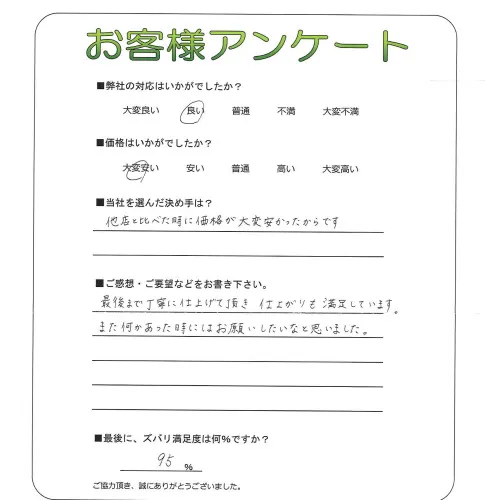 お客様アンケート
■弊社の対応はいかがでしたか？
大変良い 良い 普通 不満 大変不満
■価格はいかがでしたか？
大変安い 安い 普通 高い 大変高い
■当社を選んだ決め手は？
他店と比べた時に価格が大変安かったからです
■ご感想・ご要望などをお書き下さい。
最後まで丁寧に仕上げて頂き 仕上がりも満足しています。
また何かあった時にはお願いしたいなと思いました。
■最後に、ズバリ満足度は何％ですか？
95 %
ご協力頂き、誠にありがとうございました。